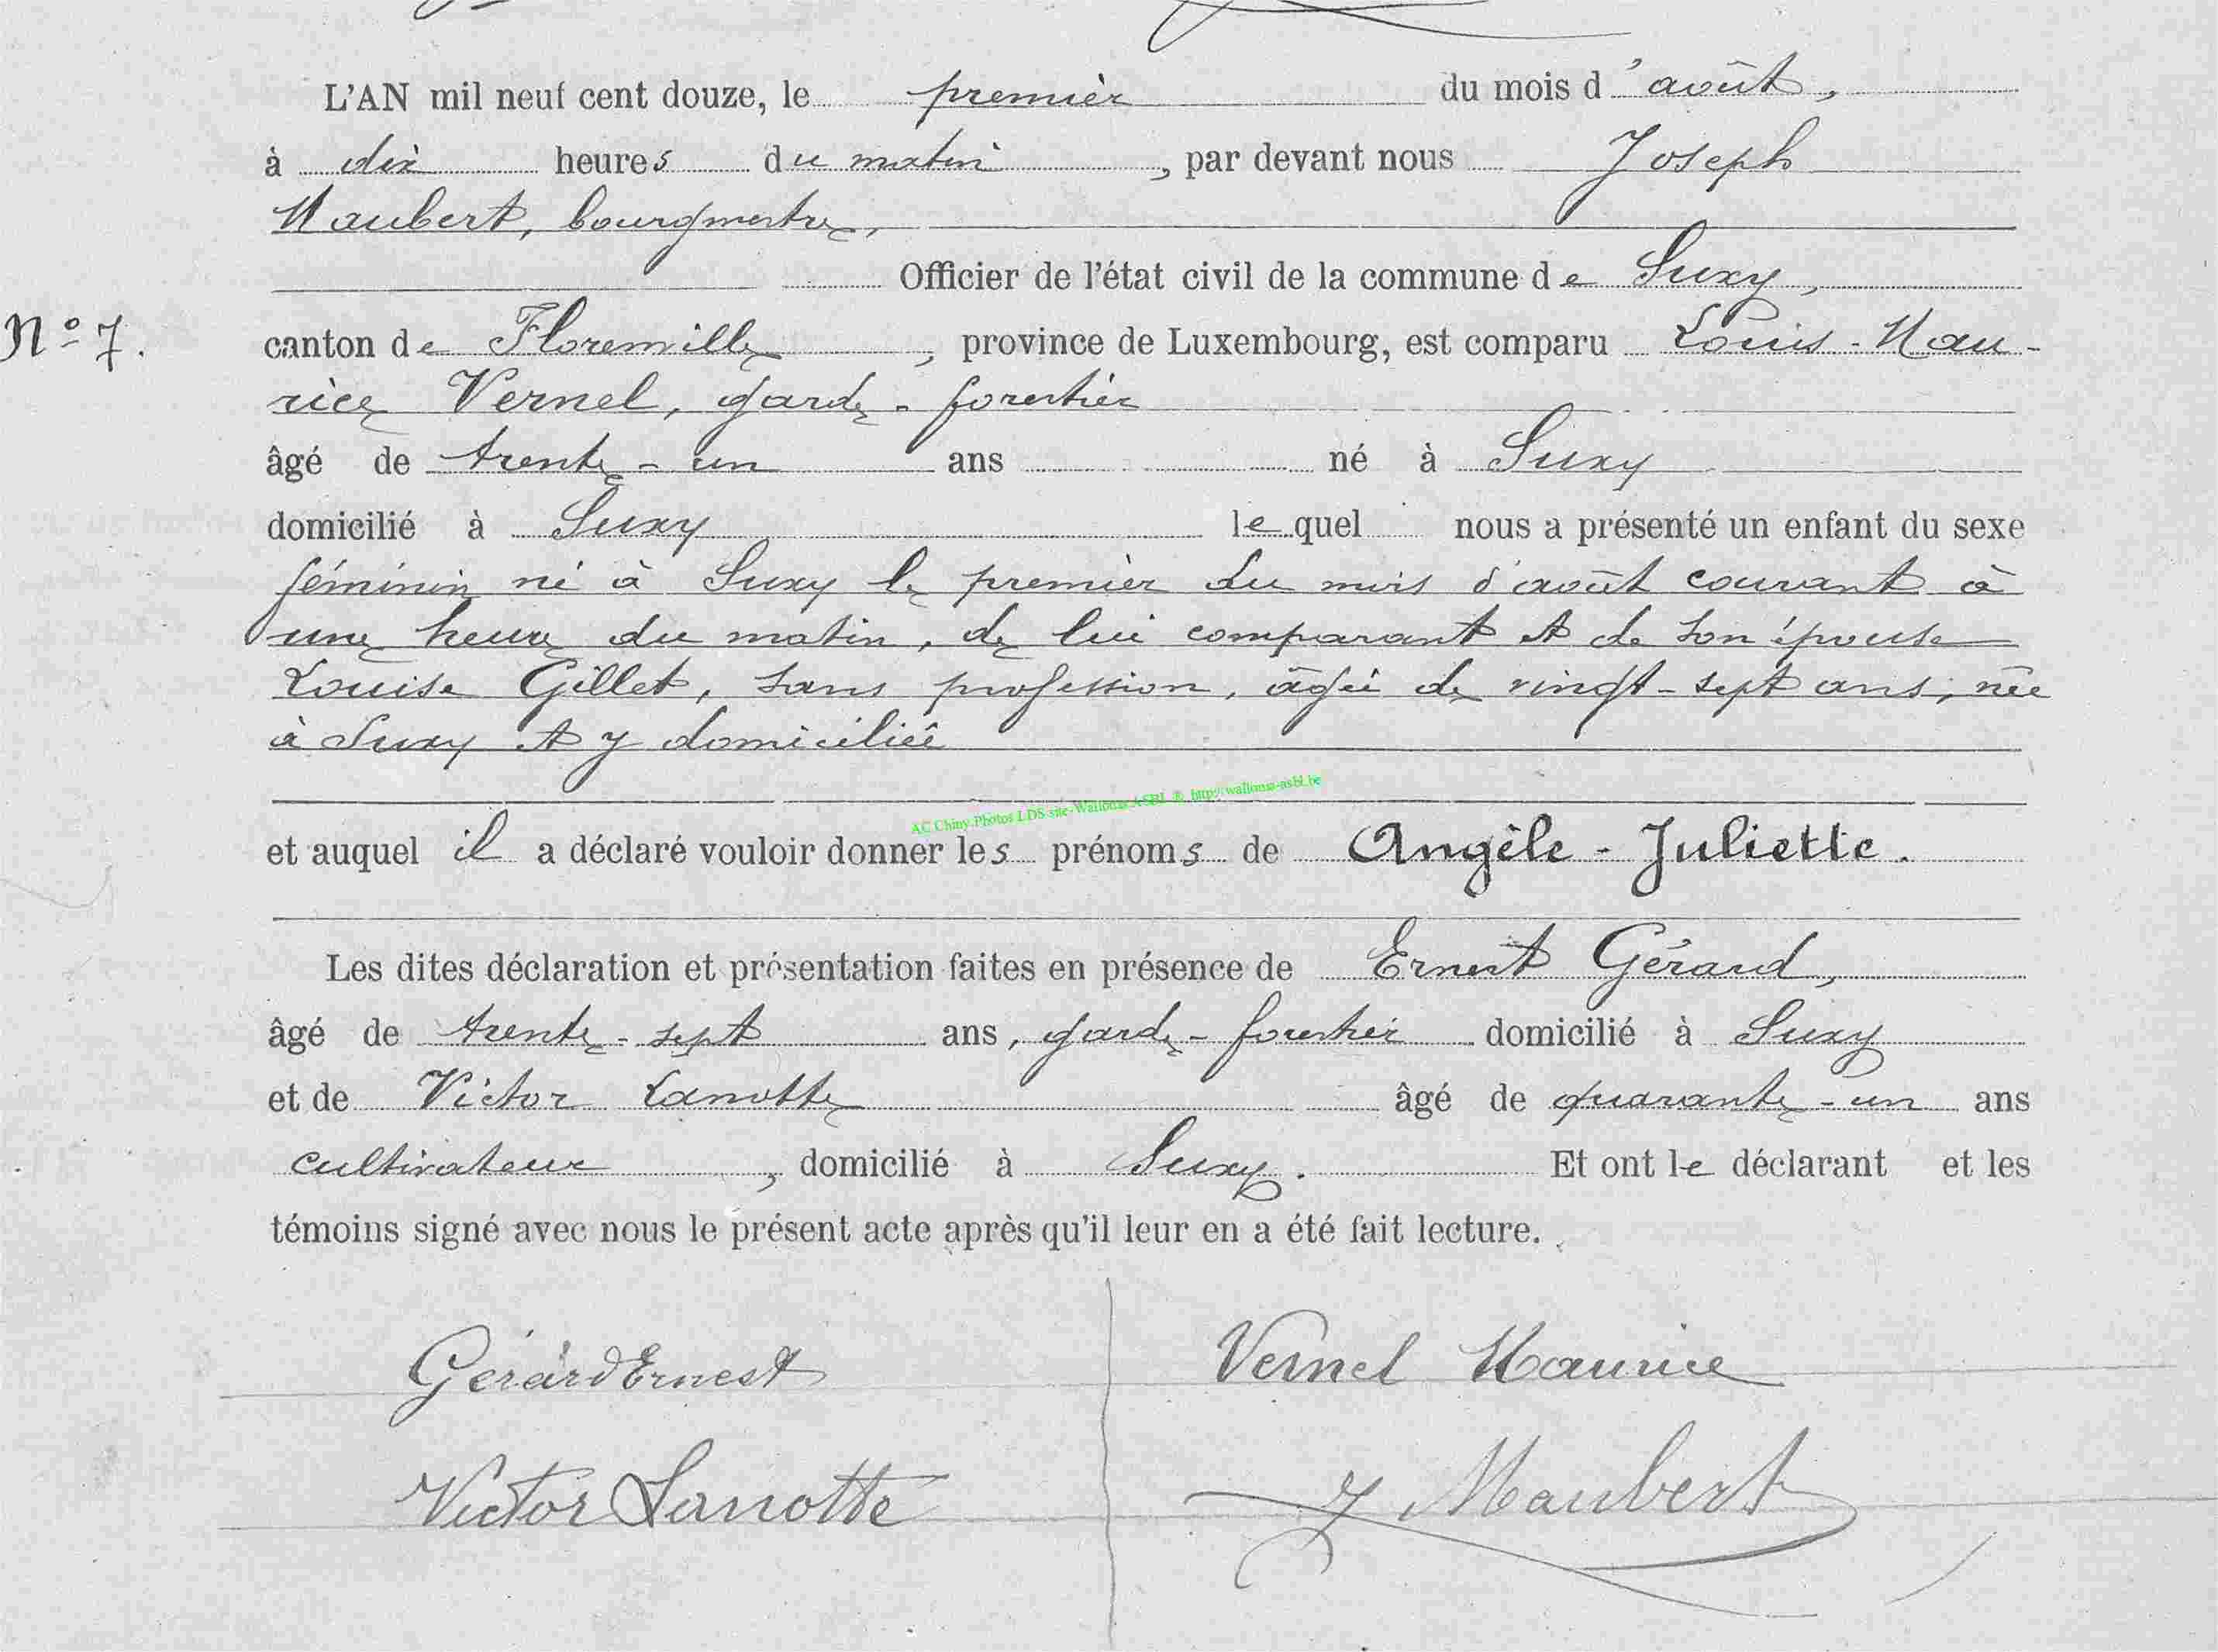 L'AN mil neuf cent douze, le premier du mois d'août,
à dix heures du matin, par devant nous Joseph
Maubert, bourgmestre,
Officier de l'état civil de la commune de Suxy,
N° 7.
canton de Florenville, province de Luxembourg, est comparu Louis-Mau-
rice Vernel, garde-forestier
âgé de trente-un ans né à Suxy
domicilié à Suxy lequel nous a présenté un enfant du sexe
féminin né à Suxy le premier du mois d'août courant à
une heure du matin, de lui comparant et de son épouse
Louise Gillet, sans profession, âgée de vingt-sept ans, née
à Suxy et y domiciliée
AC Chiny-Photos LDS site-Wallonia ASBL ® http://wallonia-asbl.be
et auquel il a déclaré vouloir donner les prénoms de Angèle-Juliette.
Les dites déclaration et présentation faites en présence de Ernest Gérard,
âgé de trente-sept ans, garde-forestier domicilié à Suxy
et de Victor Lanotte âgé de quarante-un ans
cultivateur, domicilié à Suxy. Et ont le déclarant et les
témoins signé avec nous le présent acte après qu'il leur en a été fait lecture.
Gérard Ernest
Vernel Maurice
Victor Lanotte
J Maubert